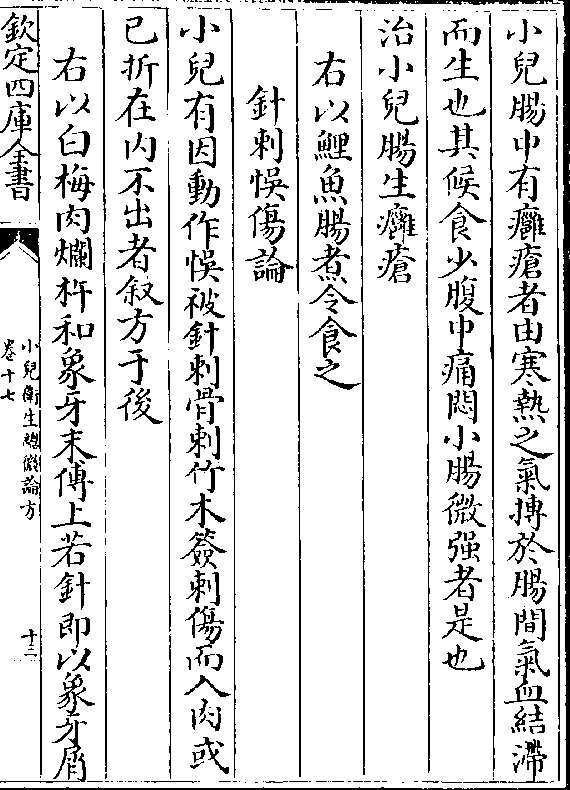 小兒腸中有癰瘡者由寒熱之氣搏於腸間氣血結滯
而生也其候食少腹中痛悶小腸微强者是也
治小兒腸生癰瘡
右以鯉魚腸煮令食之
針刺悞傷論
小兒有因動作悞被針刺骨刺竹木簽刺傷而入肉或
已折在内不出者叙方于後
右以白梅肉爛杵和象牙末傅上若針即以象牙屑
欽定四庫全書
小兒衛生總微論方
卷十七
十三